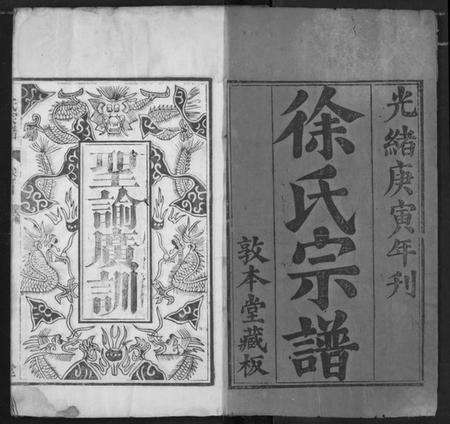 光緒庚寅年刊
徐氏宗譜
敦本堂藏板
聖諭廣訓